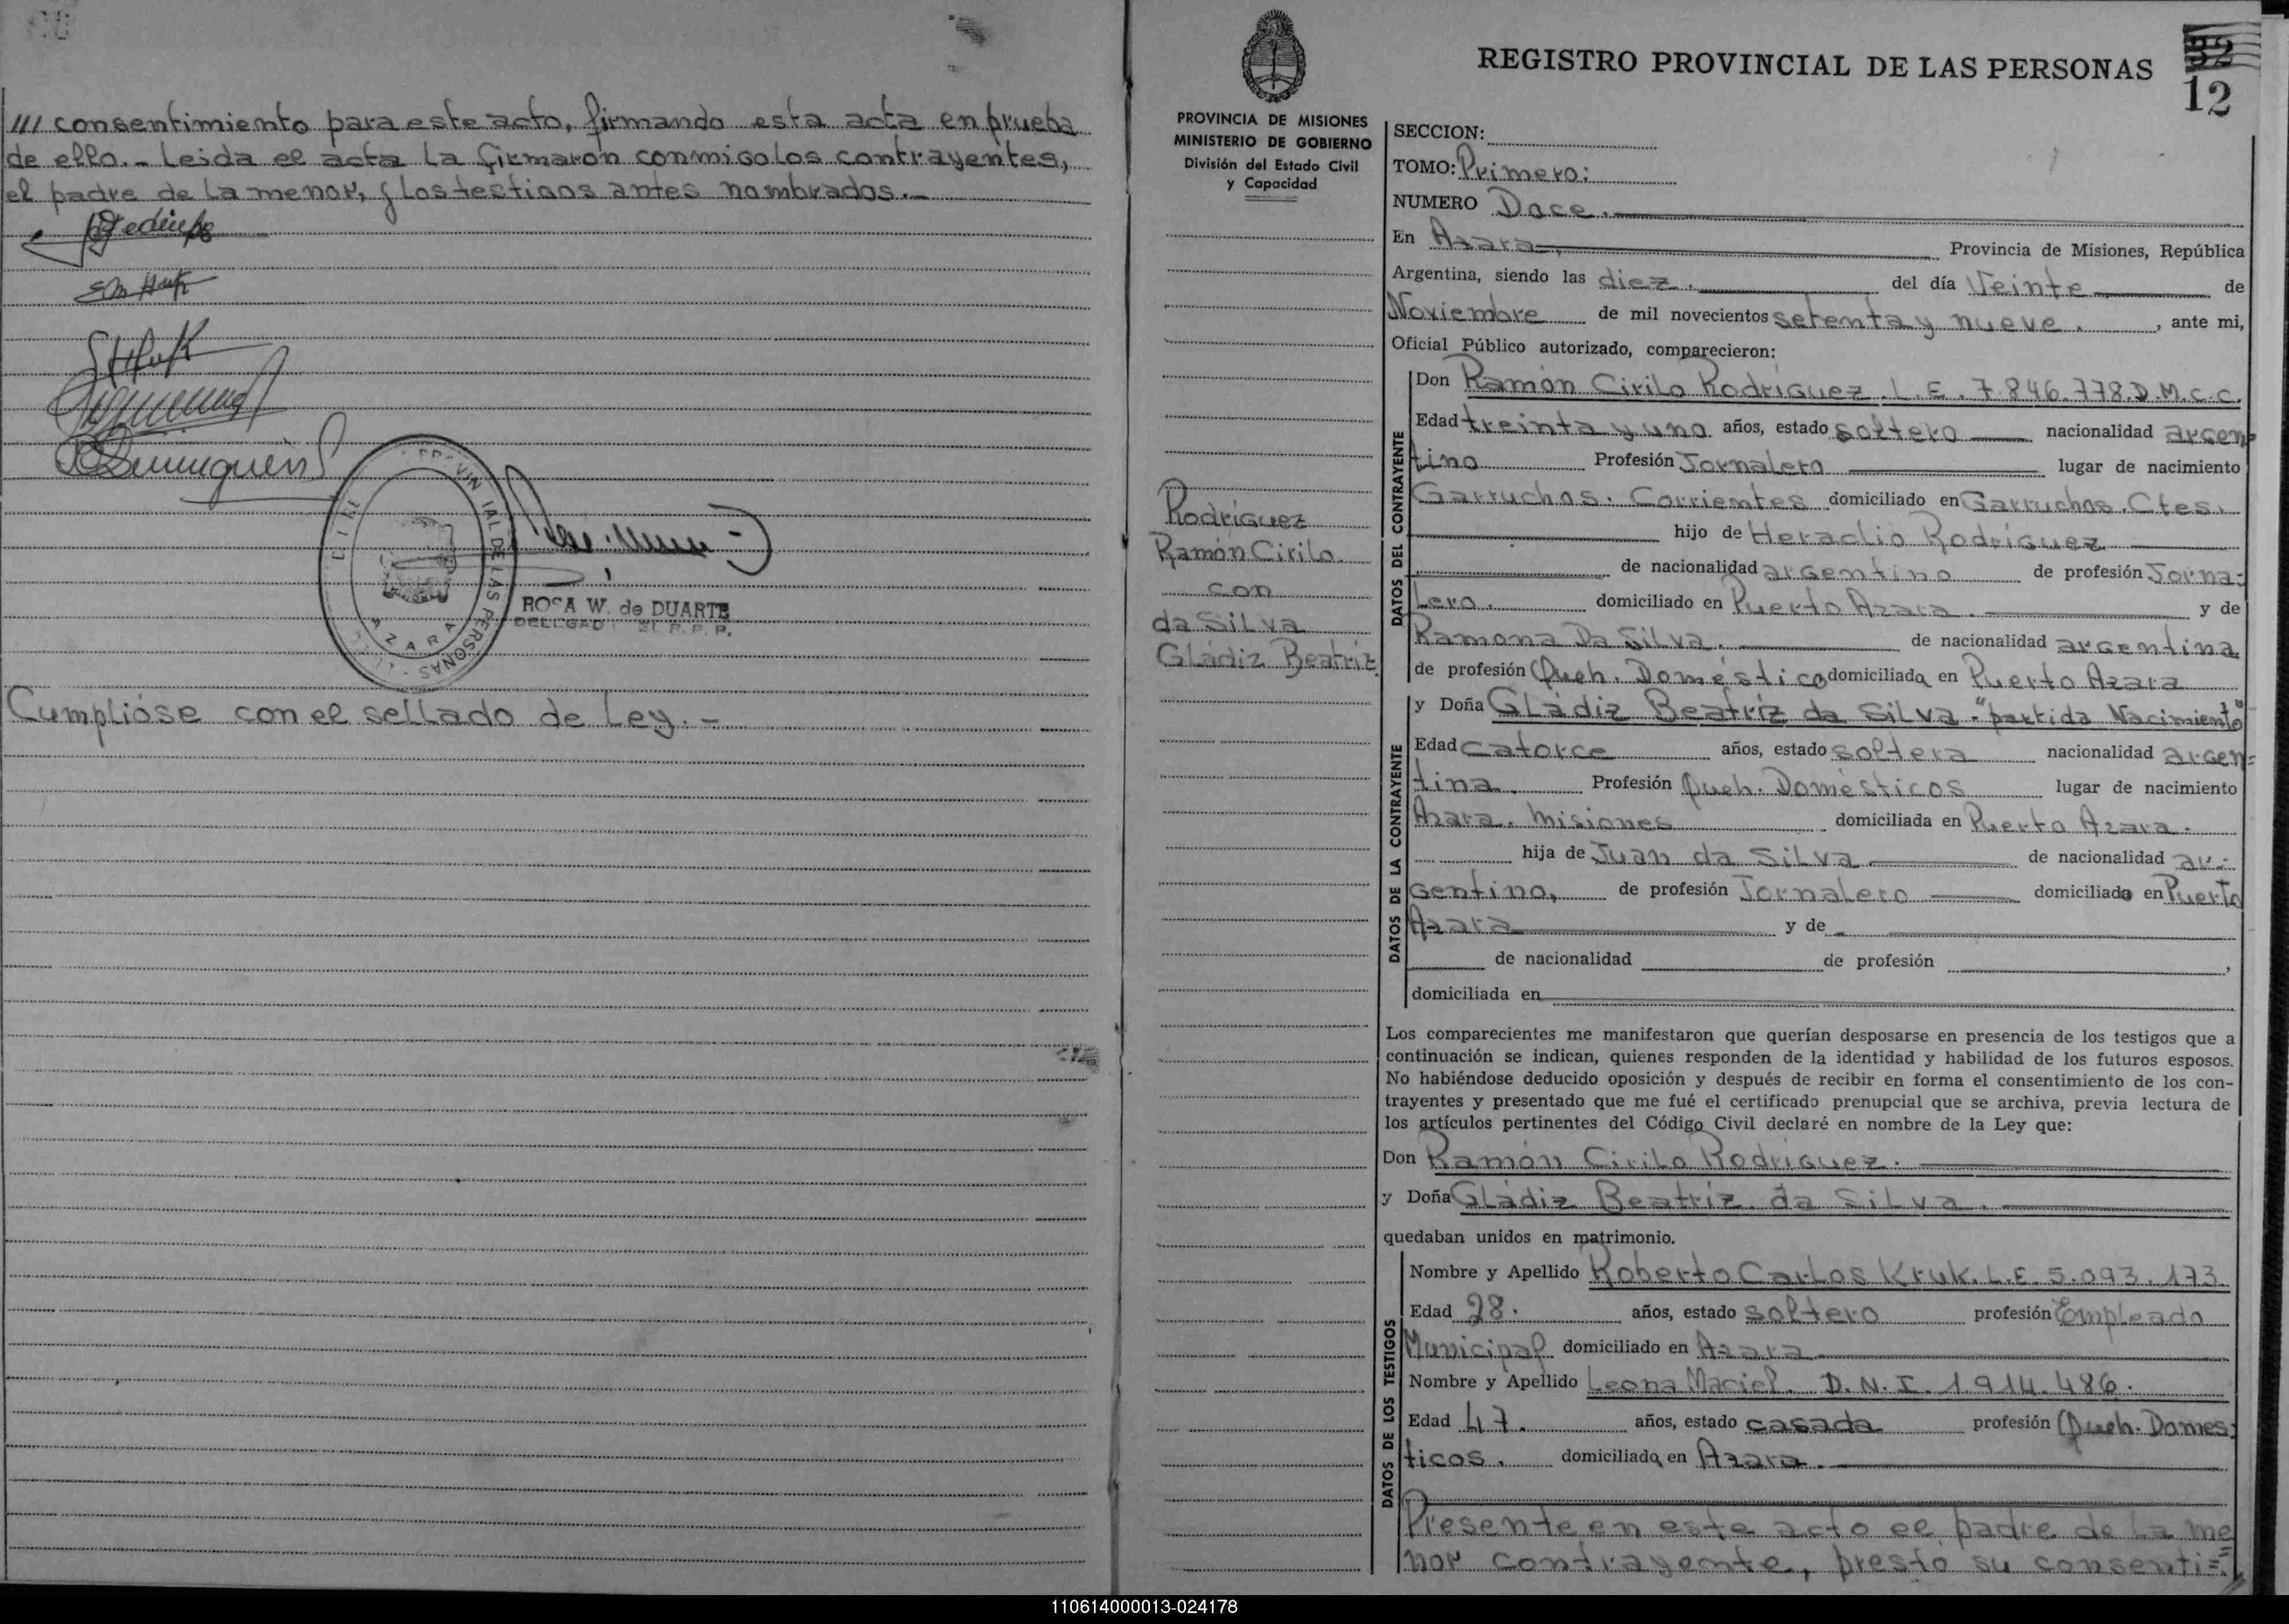 /// consentimiento para este acto, firmando esta acta en prueba
de ello.- Leida el acta La firmaron conmigo los contrayentes,
el padre de la menor, y los testigos antes nombrados.-
PROVINCIAL DE LAS PERSONAS
AZARA
ROSA W. de DUARTE
Cumplióse con el sellado de Ley.-
REGISTRO PROVINCIAL DE LAS PERSONAS
32
12
PROVINCIA DE MISIONES
MINISTERIO DE GOBIERNO
División del Estado Civil
y Capacidad
Rodríguez
Ramón Cirilo
con
da Silva
Gládiz Beatríz
SECCION:
TOMO: Primero:
NUMERO Doce.
En Azara, Provincia de Misiones, República
Argentina, siendo las diez. del día Veinte de
Noviembre de mil novecientos setenta y nueve. , ante mi,
Oficial Público autorizado, comparecieron:
DATOS DEL CONTRAYENTE
Don Ramón Cirilo Rodríguez. L.E. 7.846.778.D.M.C.C.
Edad treinta y uno años, estado soltero nacionalidad argen=
tino Profesión Jornalero lugar de nacimiento
Garruchos. Corrientes domiciliado en Garruchos. Ctes.
hijo de Heraclio Rodríguez
de nacionalidad argentino de profesión Jorna=
lero. domiciliado en Puerto Azara. y de
Ramona Da Silva. de nacionalidad argentina
de profesión Queh. Doméstico domiciliada en Puerto Azara
DATOS DE LA CONTRAYENTE
y Doña Gládiz Beatríz da Silva. "partida Nacimiento"
Edad catorce años, estado soltera nacionalidad argen=
tina. Profesión Queh. Domésticos lugar de nacimiento
Azara. Misiones domiciliada en Puerto Azara.
hija de Juan da Silva de nacionalidad ar=
gentino, de profesión Jornalero domiciliado en Puerto
Azara y de
de nacionalidad de profesión ,
domiciliada en
Los comparecientes me manifestaron que querían desposarse en presencia de los testigos que a
continuación se indican, quienes responden de la identidad y habilidad de los futuros esposos.
No habiéndose deducido oposición y después de recibir en forma el consentimiento de los con-
trayentes y presentado que me fué el certificado prenupcial que se archiva, previa lectura de
los artículos pertinentes del Código Civil declaré en nombre de la Ley que:
Don Ramón Cirilo Rodríguez.
y Doña Gládiz Beatríz da Silva.
quedaban unidos en matrimonio.
DATOS DE LOS TESTIGOS
Nombre y Apellido Roberto Carlos Kruk. L.E. 5.093.173
Edad 28. años, estado soltero profesión Empleado
Municipal domiciliado en Azara
Nombre y Apellido Leona Maciel. D.N.I. 1.914.486.
Edad 47. años, estado casada profesión Queh. Domes=
ticos. domiciliada en Azara.
Presente en este acto el padre de la me
nor contrayente, prestó su consenti=
110614000013-024178